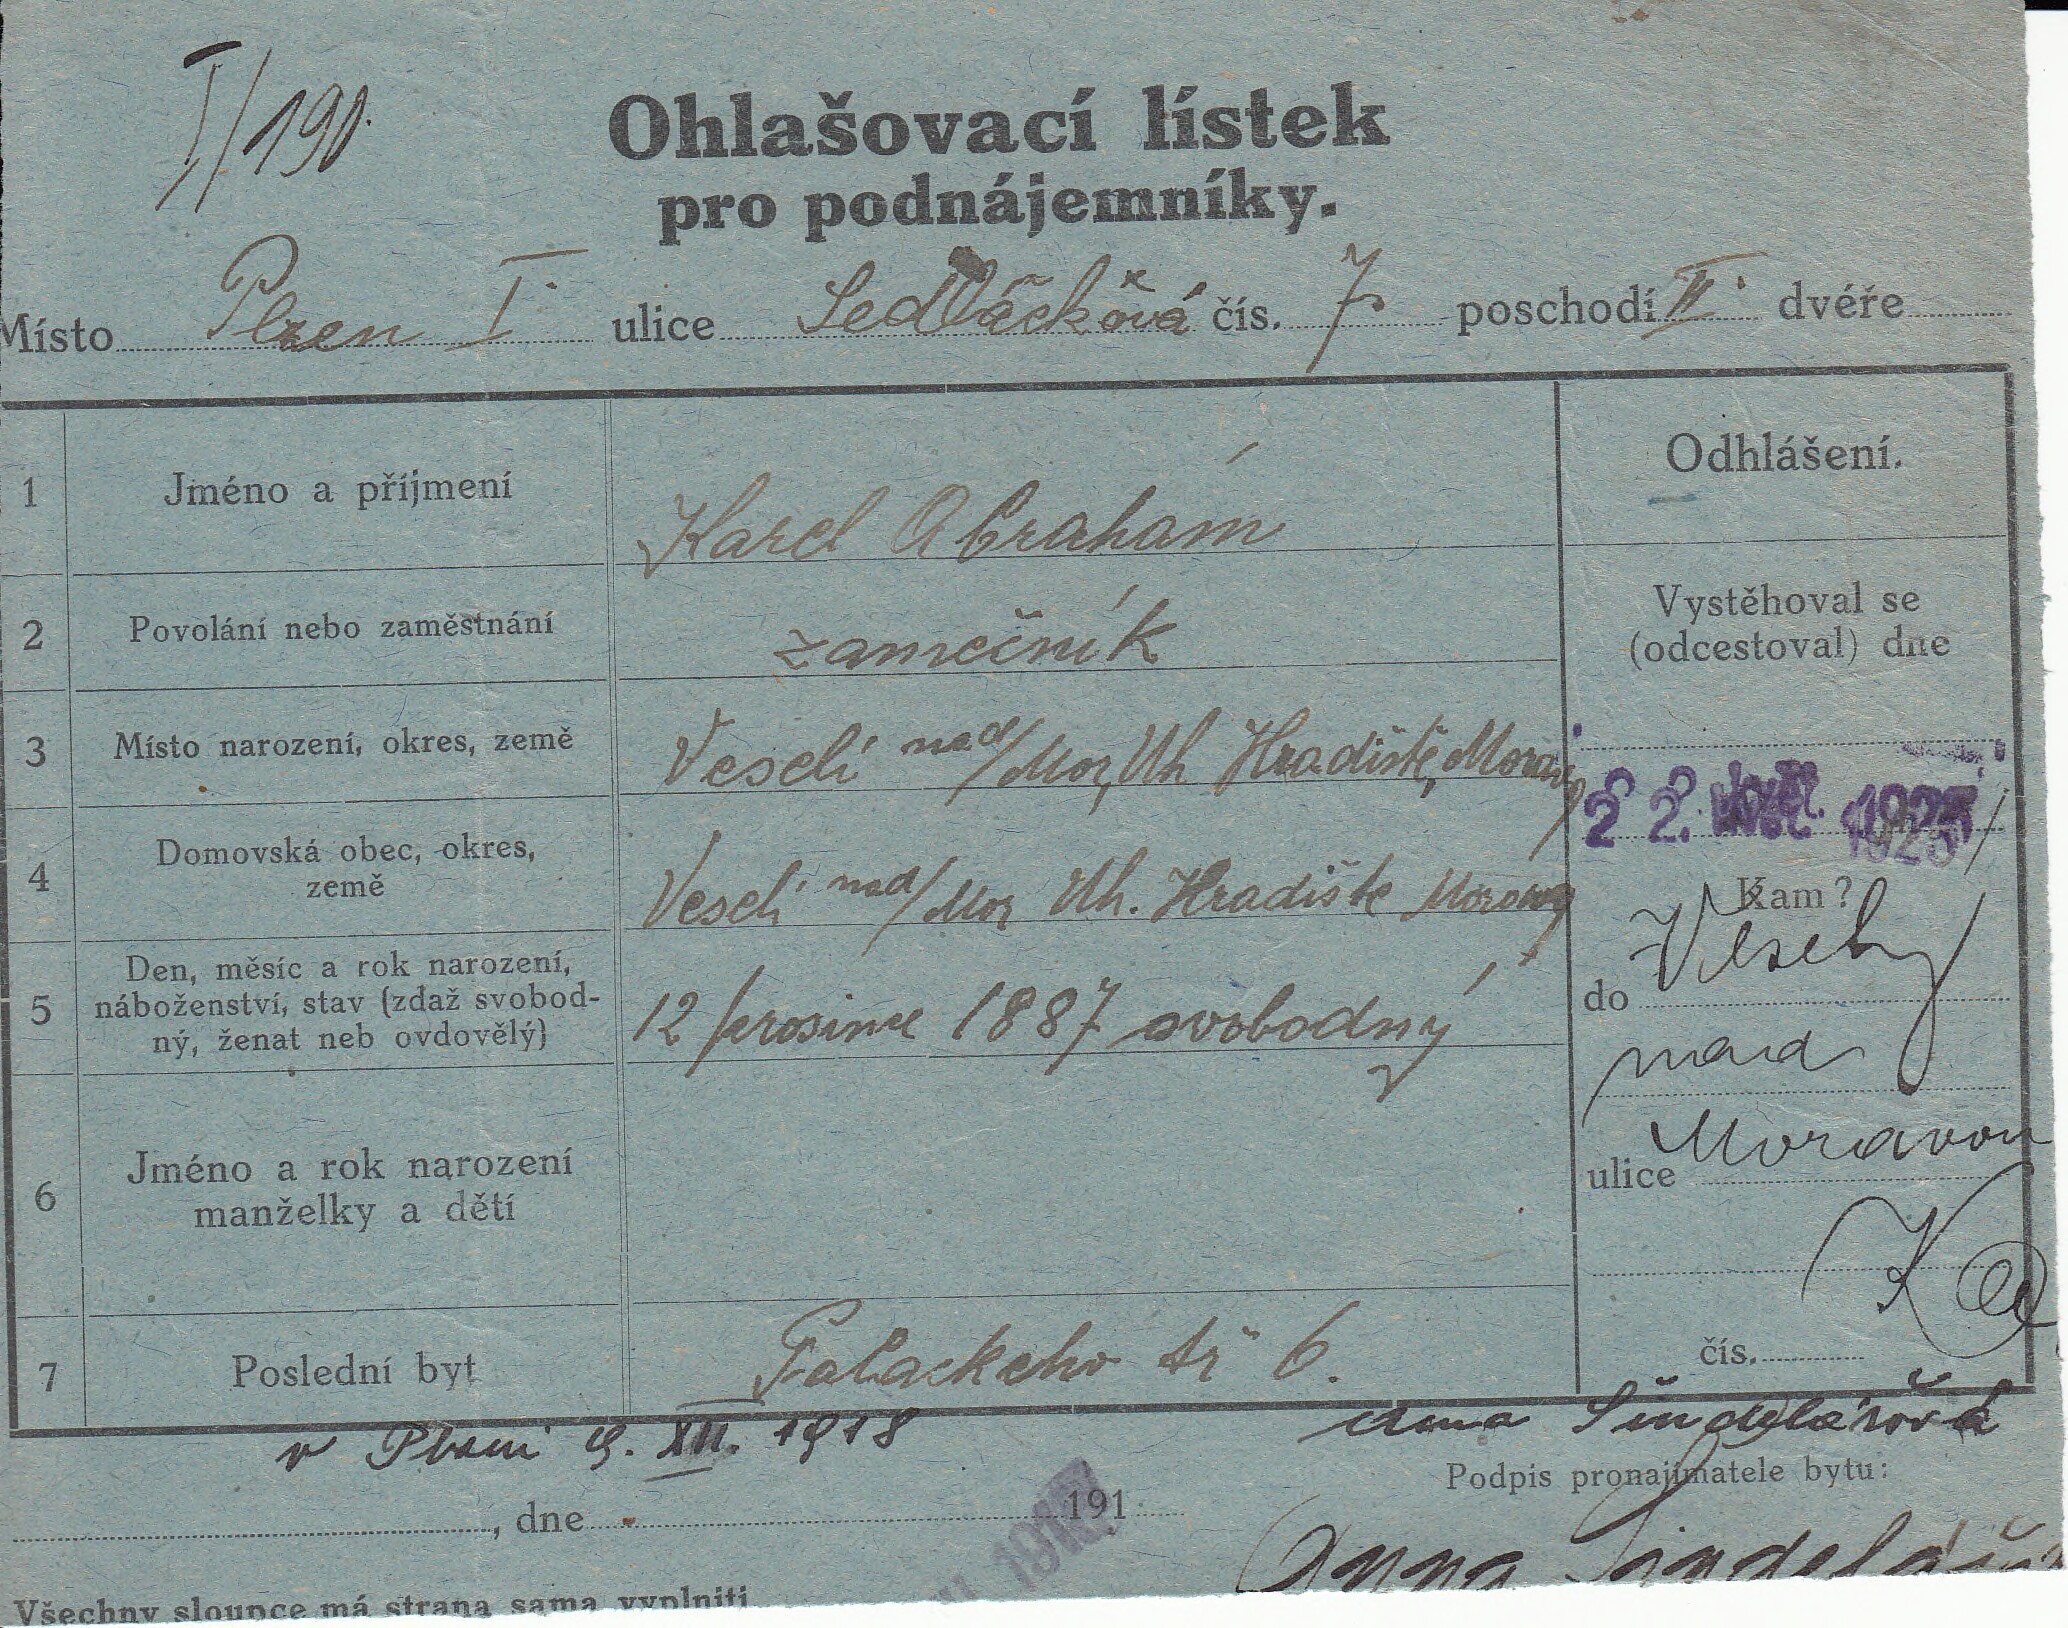 I/190.
Ohlašovací lístek
pro podnájemníky.
Místo Plzen I. ulice Sedláčková čís. 7 poschodí II. dvéře
1 Jméno a příjmení Karel Abrahám
2 Povolání nebo zaměstnání zamečník
3 Místo narození, okres, země Veselí nad/Mor, Uh Hradiště, Morava
4 Domovská obec, okres,
země Veselí nad/Mor Uh. Hradiště Morava
5 Den, měsíc a rok narození,
náboženství, stav (zdaž svobod-
ný, ženat neb ovdovělý) 12 prosince 1887 svobodný
6 Jméno a rok narození
manželky a dětí
7 Poslední byt Palackeho tř 6.
Odhlášení.
Vystěhoval se
(odcestoval) dne
22.
Kam?
do Vesely
nad
ulice Moravou
čís.
v Plzni 9. XII. 1918
Anna Šindelářová
Podpis pronajímatele bytu:
, dne 191
Anna Šindelářo
Všechny sloupce má strana sama vyplniti